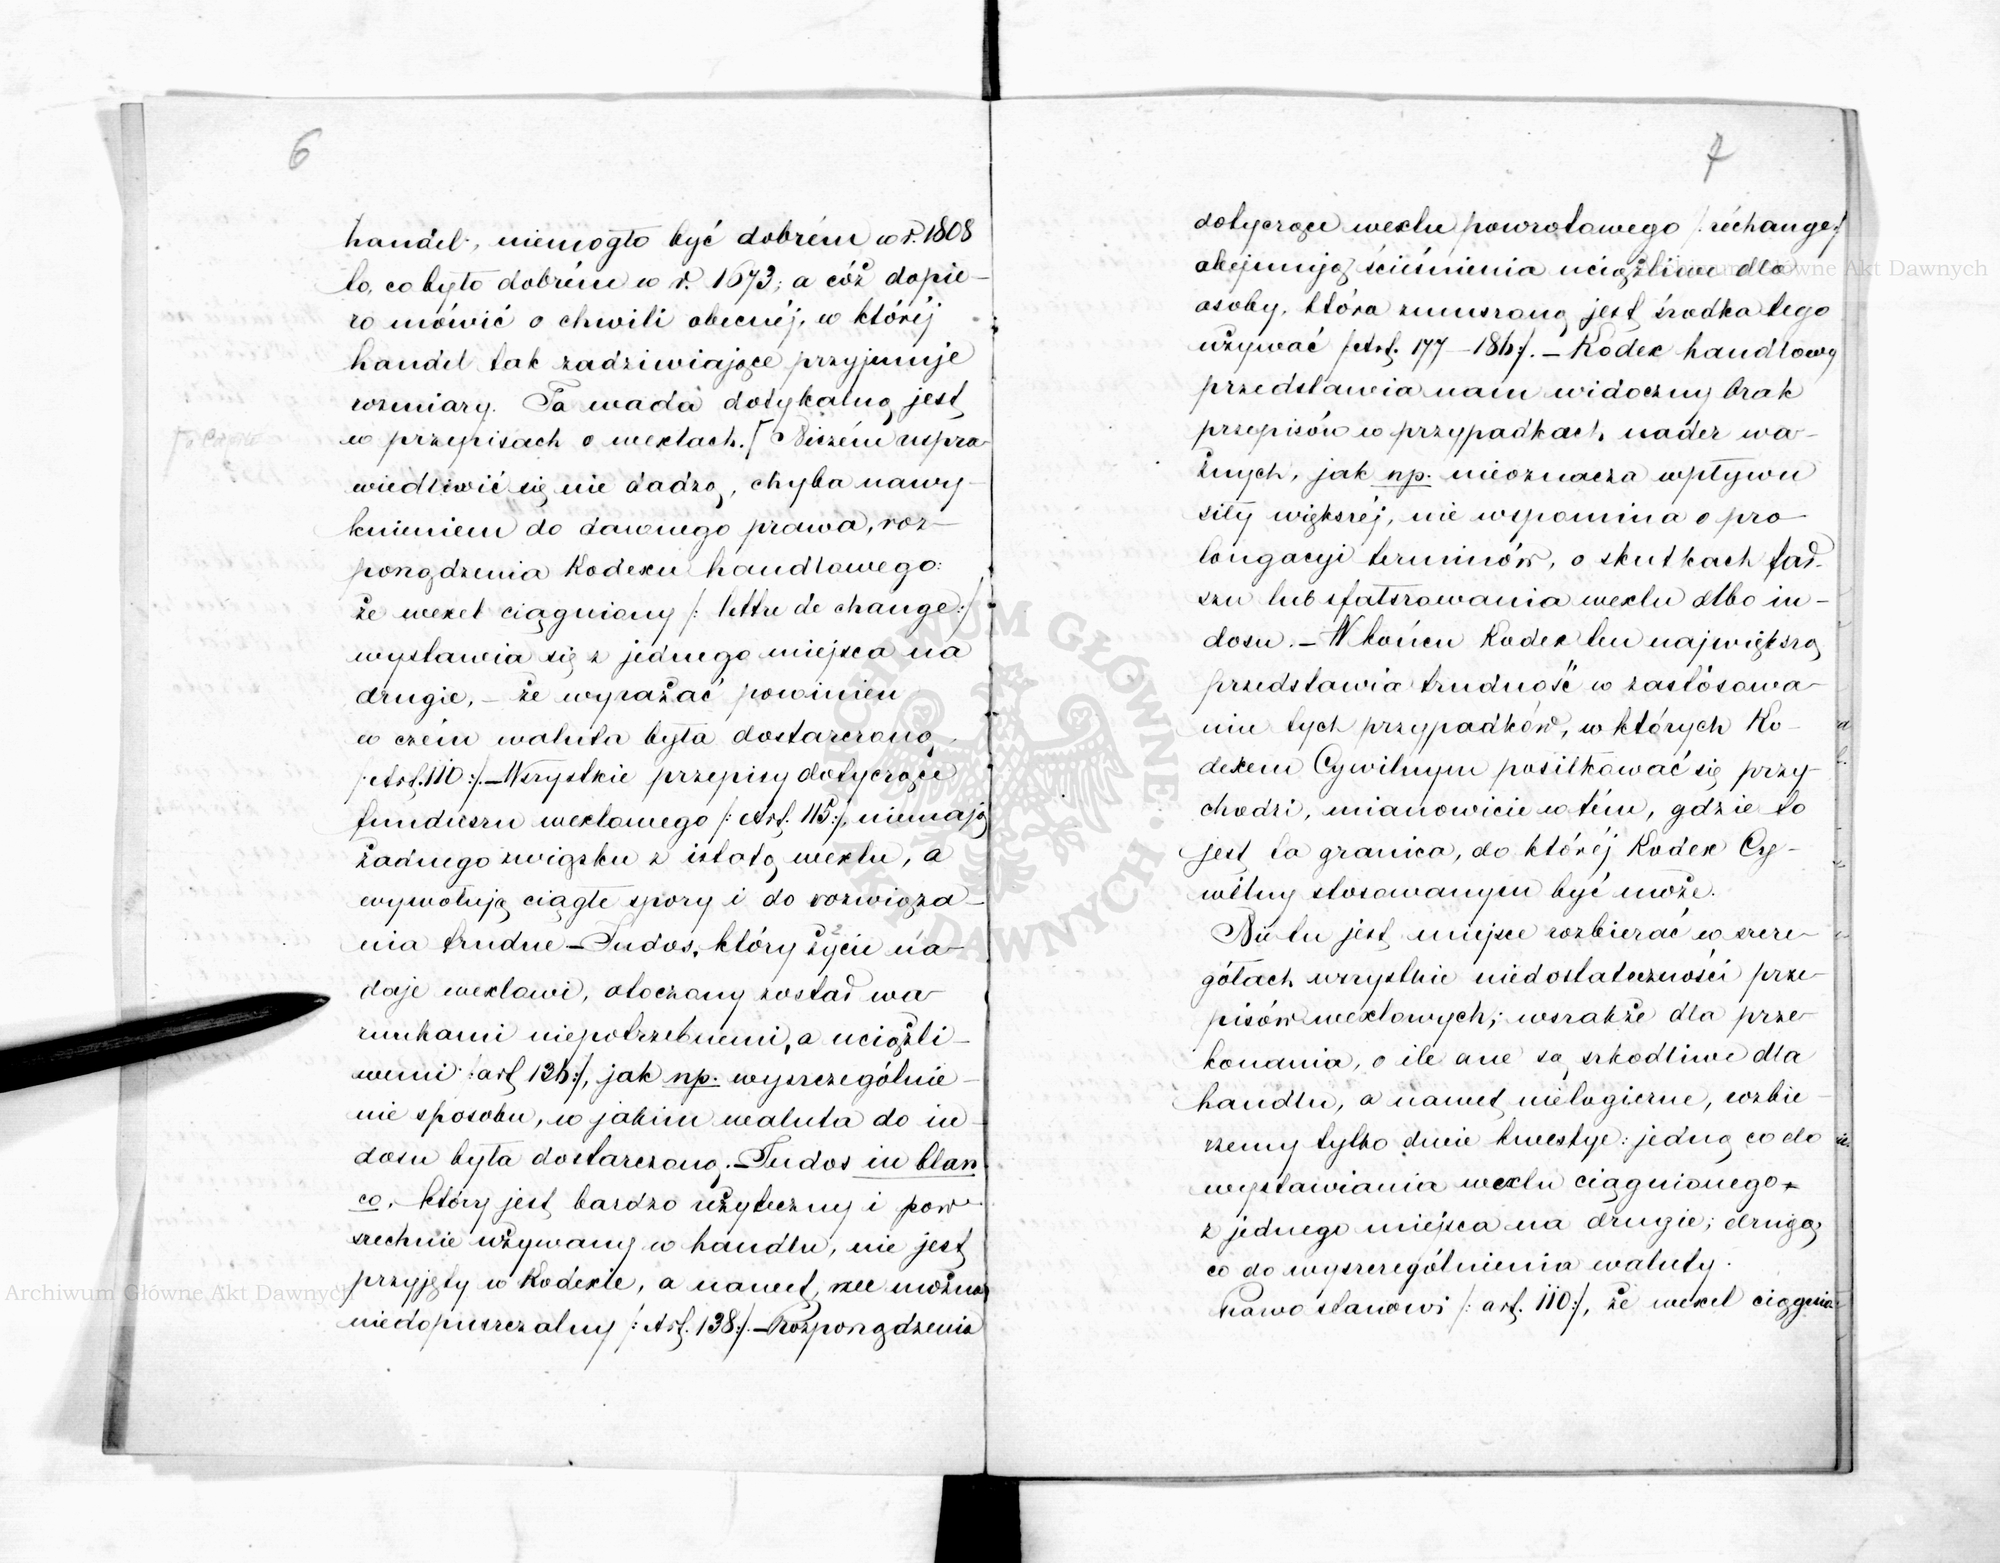 6
handel, niemogło być dobrém w r. 1808
to, co było dobrém w r. 1673; a cóż dopie-
ro mówić o chwili obecnéj, w któréj
handel tak zadziwiające przyjmuje
rozmiary. Ta wada dotykalną jest
w przepisach o wexlach. [Niczém uspra-
wiedliwić się nie dadzą, chyba nawy-
knieniem do dawnego prawa, roz-
porządzenia Kodexu handlowego:
że wexel ciągniony /: lettre de change:/
wystawia się z jednego miejsca na
drugie, – że wyrażać powinien
w czém waluta była dostarczoną
/: Art. 110:/. – Wszystkie przepisy dotyczące
funduszu wexlowego /: Art. 115:/, niemają
żadnego związku z istotą wexlu, a
wywołują ciągłe spory i do rozwiąza-
nia trudne – Indos, który życie na-
daje wexlowi, otoczony został wa-
runkami niepotrzebnemi, a uciążli-
wemi /: art 136:/, jak np. wyszczególnie-
nie sposobu, w jakim waluta do in-
dosu była dostarczoną. – Indos in blan
co, który jest bardzo użyteczny i pow-
szechnie używany w handlu, nie jest
przyjęty w Kodexie, a nawet, rzec można
niedopuszczalny /: Art. 138:/. – Rozporządzenia
7
dotyczące wexlu powrotowego /: réchange:/
obejmują ścieśnienia uciążliwe dla
osoby, która zmuszoną jest środka tego
używać /: Art. 177 – 186:/. – Kodex handlowy
przedstawia nam widoczny brak
przepisów w przypadkach nader wa-
żnych, jak np. nieoznacza wpływu
siły większéj, nie wspomina o pro-
longacyi terminów, o skutkach fał-
szu lub sfałszowania wexlu albo in-
dosu. – W końcu Kodex ten największą
przedstawia trudność w zastósowa-
niu tych przypadków, w których Ko-
dexem Cywilnym posiłkować się przy-
chodzi, mianowicie w tém, gdzie to
jest ta granica, do któréj Kodex Cy-
wilny stosowanym być może.
Nie tu jest miejsce rozbierać w szcze-
gółach wszystkie niedostateczności prze-
pisów wexlowych; wszakże dla prze-
konania, o ile one są szkodliwe dla
handlu, a nawet nielogiczne, rozbie-
rzemy tylko dwie kwestye: jedną co do
wystawiania wexlu ciągnionego
z jednego miejsca na drugie; drugą
co do wyszczególnienia waluty.
Prawo stanowi /: art. 110:/, że wexel ciągnio-
Archiwum Główne Akt Dawnych
Archiwum Główne Akt Dawnych
ARCHIWUM GŁÓWNE AKT DAWNYCH